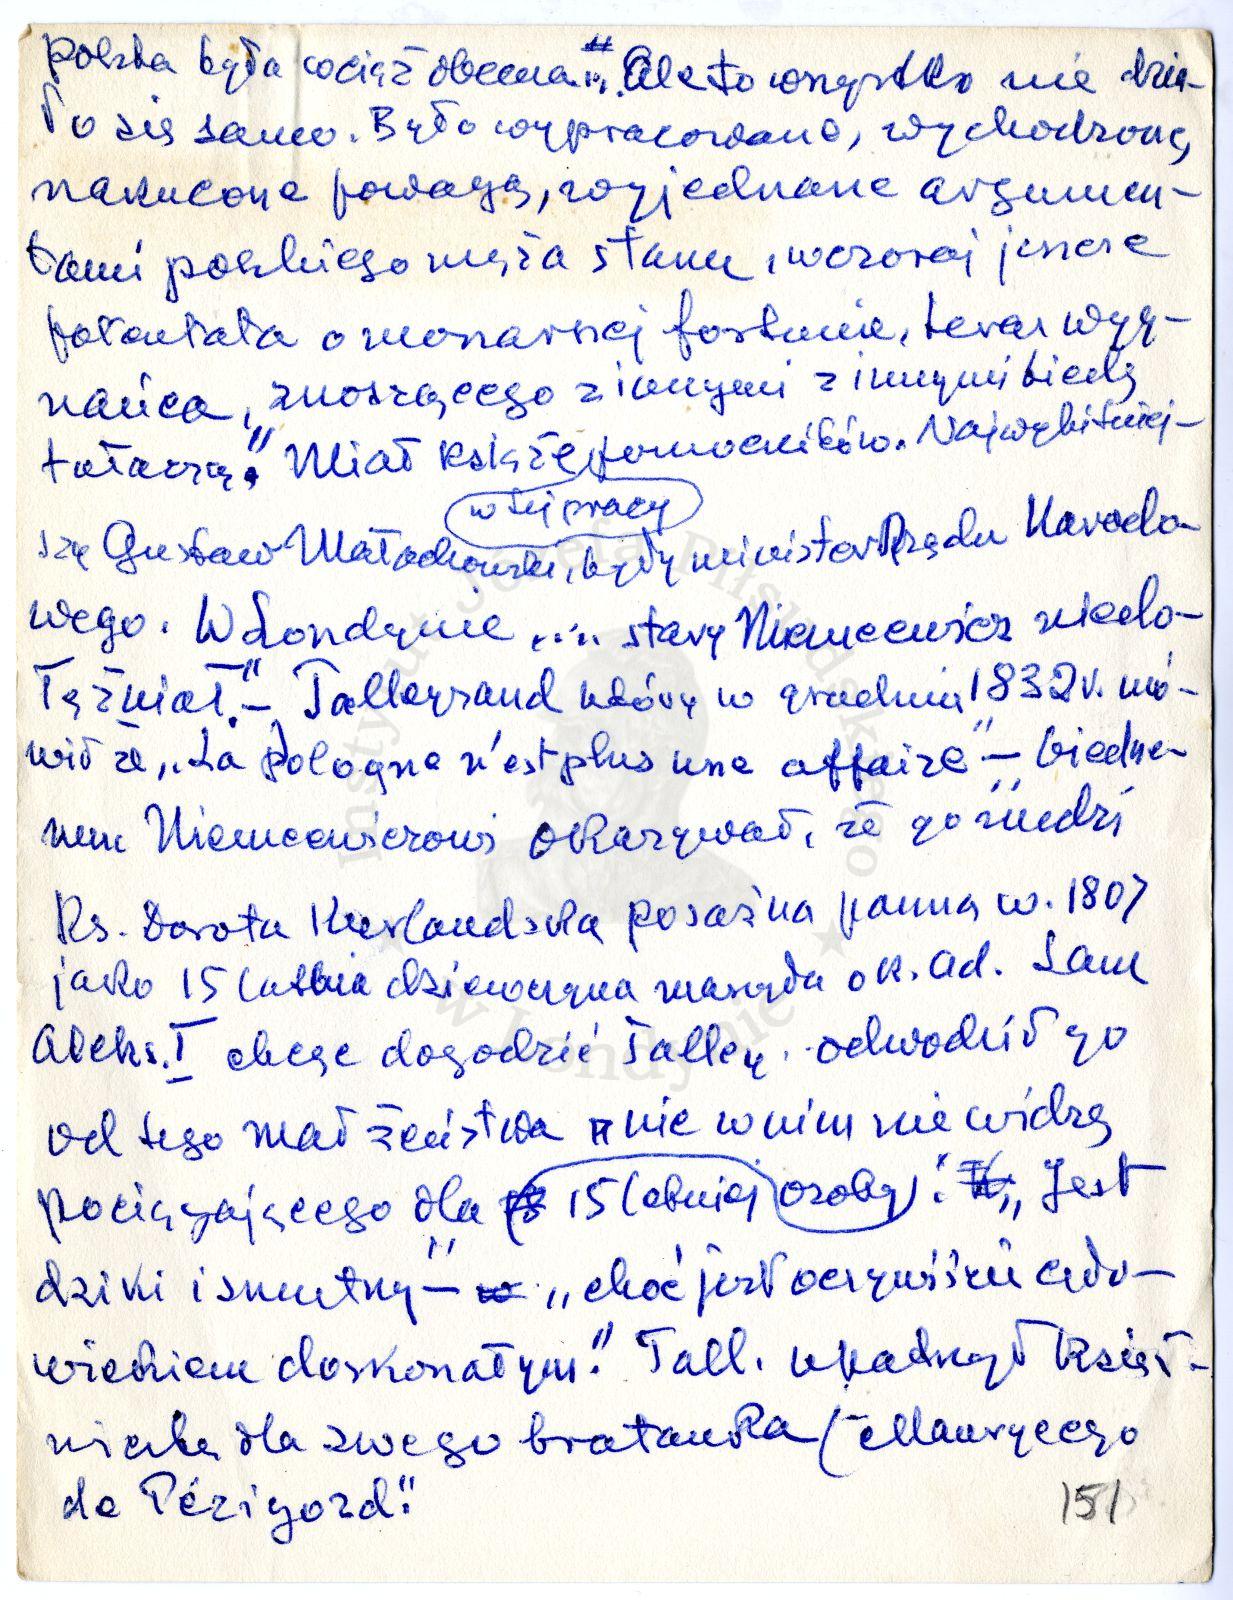 polska była wciąż obecna". Ale to wszystko nie dzia-
ło się samo. Było wypracowane, wychodzone,
narzucone powagą, wyjednane argumen-
tami polskiego męża stanu, wczoraj jeszcze
potentata o monarszej fortunie, teraz wyg-
nańca, "znoszącego z innymi z innymi biedę
tułaczą." Miał książę pomocników. Najwybitniej-
w tej pracy
szy Gustaw Małachowski, były minister Rządu Narodo-
wego. W Londynie ..... stary Niemcewicz niedo-
łężniał." – Talleyrand który w grudniu 1832 r. mó-
wił że „La Pologne n'est plus une affaire" – biedne-
mu Niemcewiczowi okazywał, że go nudzi
Ks. Dorota Kurlandzka posażna panna w. 1807
jako 15 letnia dziewczyna marzyła o k. Ad. Sam
Aleks. I chcąc dogodzić Talley. odwodził go
od tego małżeństwa nic w nim nie widzę
pociągającego dla 15 letniej osoby: „Jest
dziki i smutny" – „choć jest oczywiście czło-
wiekiem doskonałym." Tall. wykadnął księż-
niczkę dla swego bratanka (Maurycego
de Périgord."
151
Instytut Józefa Piłsudskiego
w Londynie